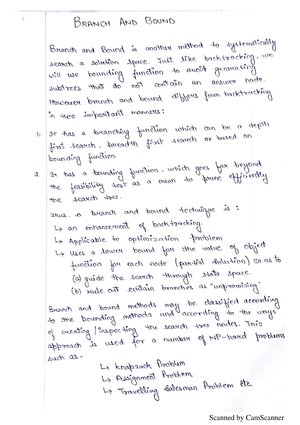 BRANCH AND BOUND
Branch and Bound is another method to systematically
search a solution space. Just like backtracking, we
will use bounding function to avoid generating
subtrees that do not contain an answer node.
However branch and bound differs from backtracking
in two important manners:
1. It has a branching function which can be a depth
first search, breadth first search or based on
bounding function
2. It has a bounding function, which goes far beyond
the feasibility test as a mean to prune efficiently
the search tree.
Thus, a branch and bound technique is :
↳ an enhancement of backtracking.
↳ Applicable to optimization problem
↳ Uses a lower bound for the value of object
function for each node (partial solution) so as to
(a) guide the search through state space.
(b) rule out certain branches as "unpromising"
Branch and bound methods may be classified according
to the bounding methods and according to the ways
of creating/inspecting the search tree nodes. This
approach is used for a number of NP-hard problems
such as -
↳ Knapsack Problem
↳ Assignment Problem
↳ Travelling Salesman Problem etc
Scanned by CamScanner